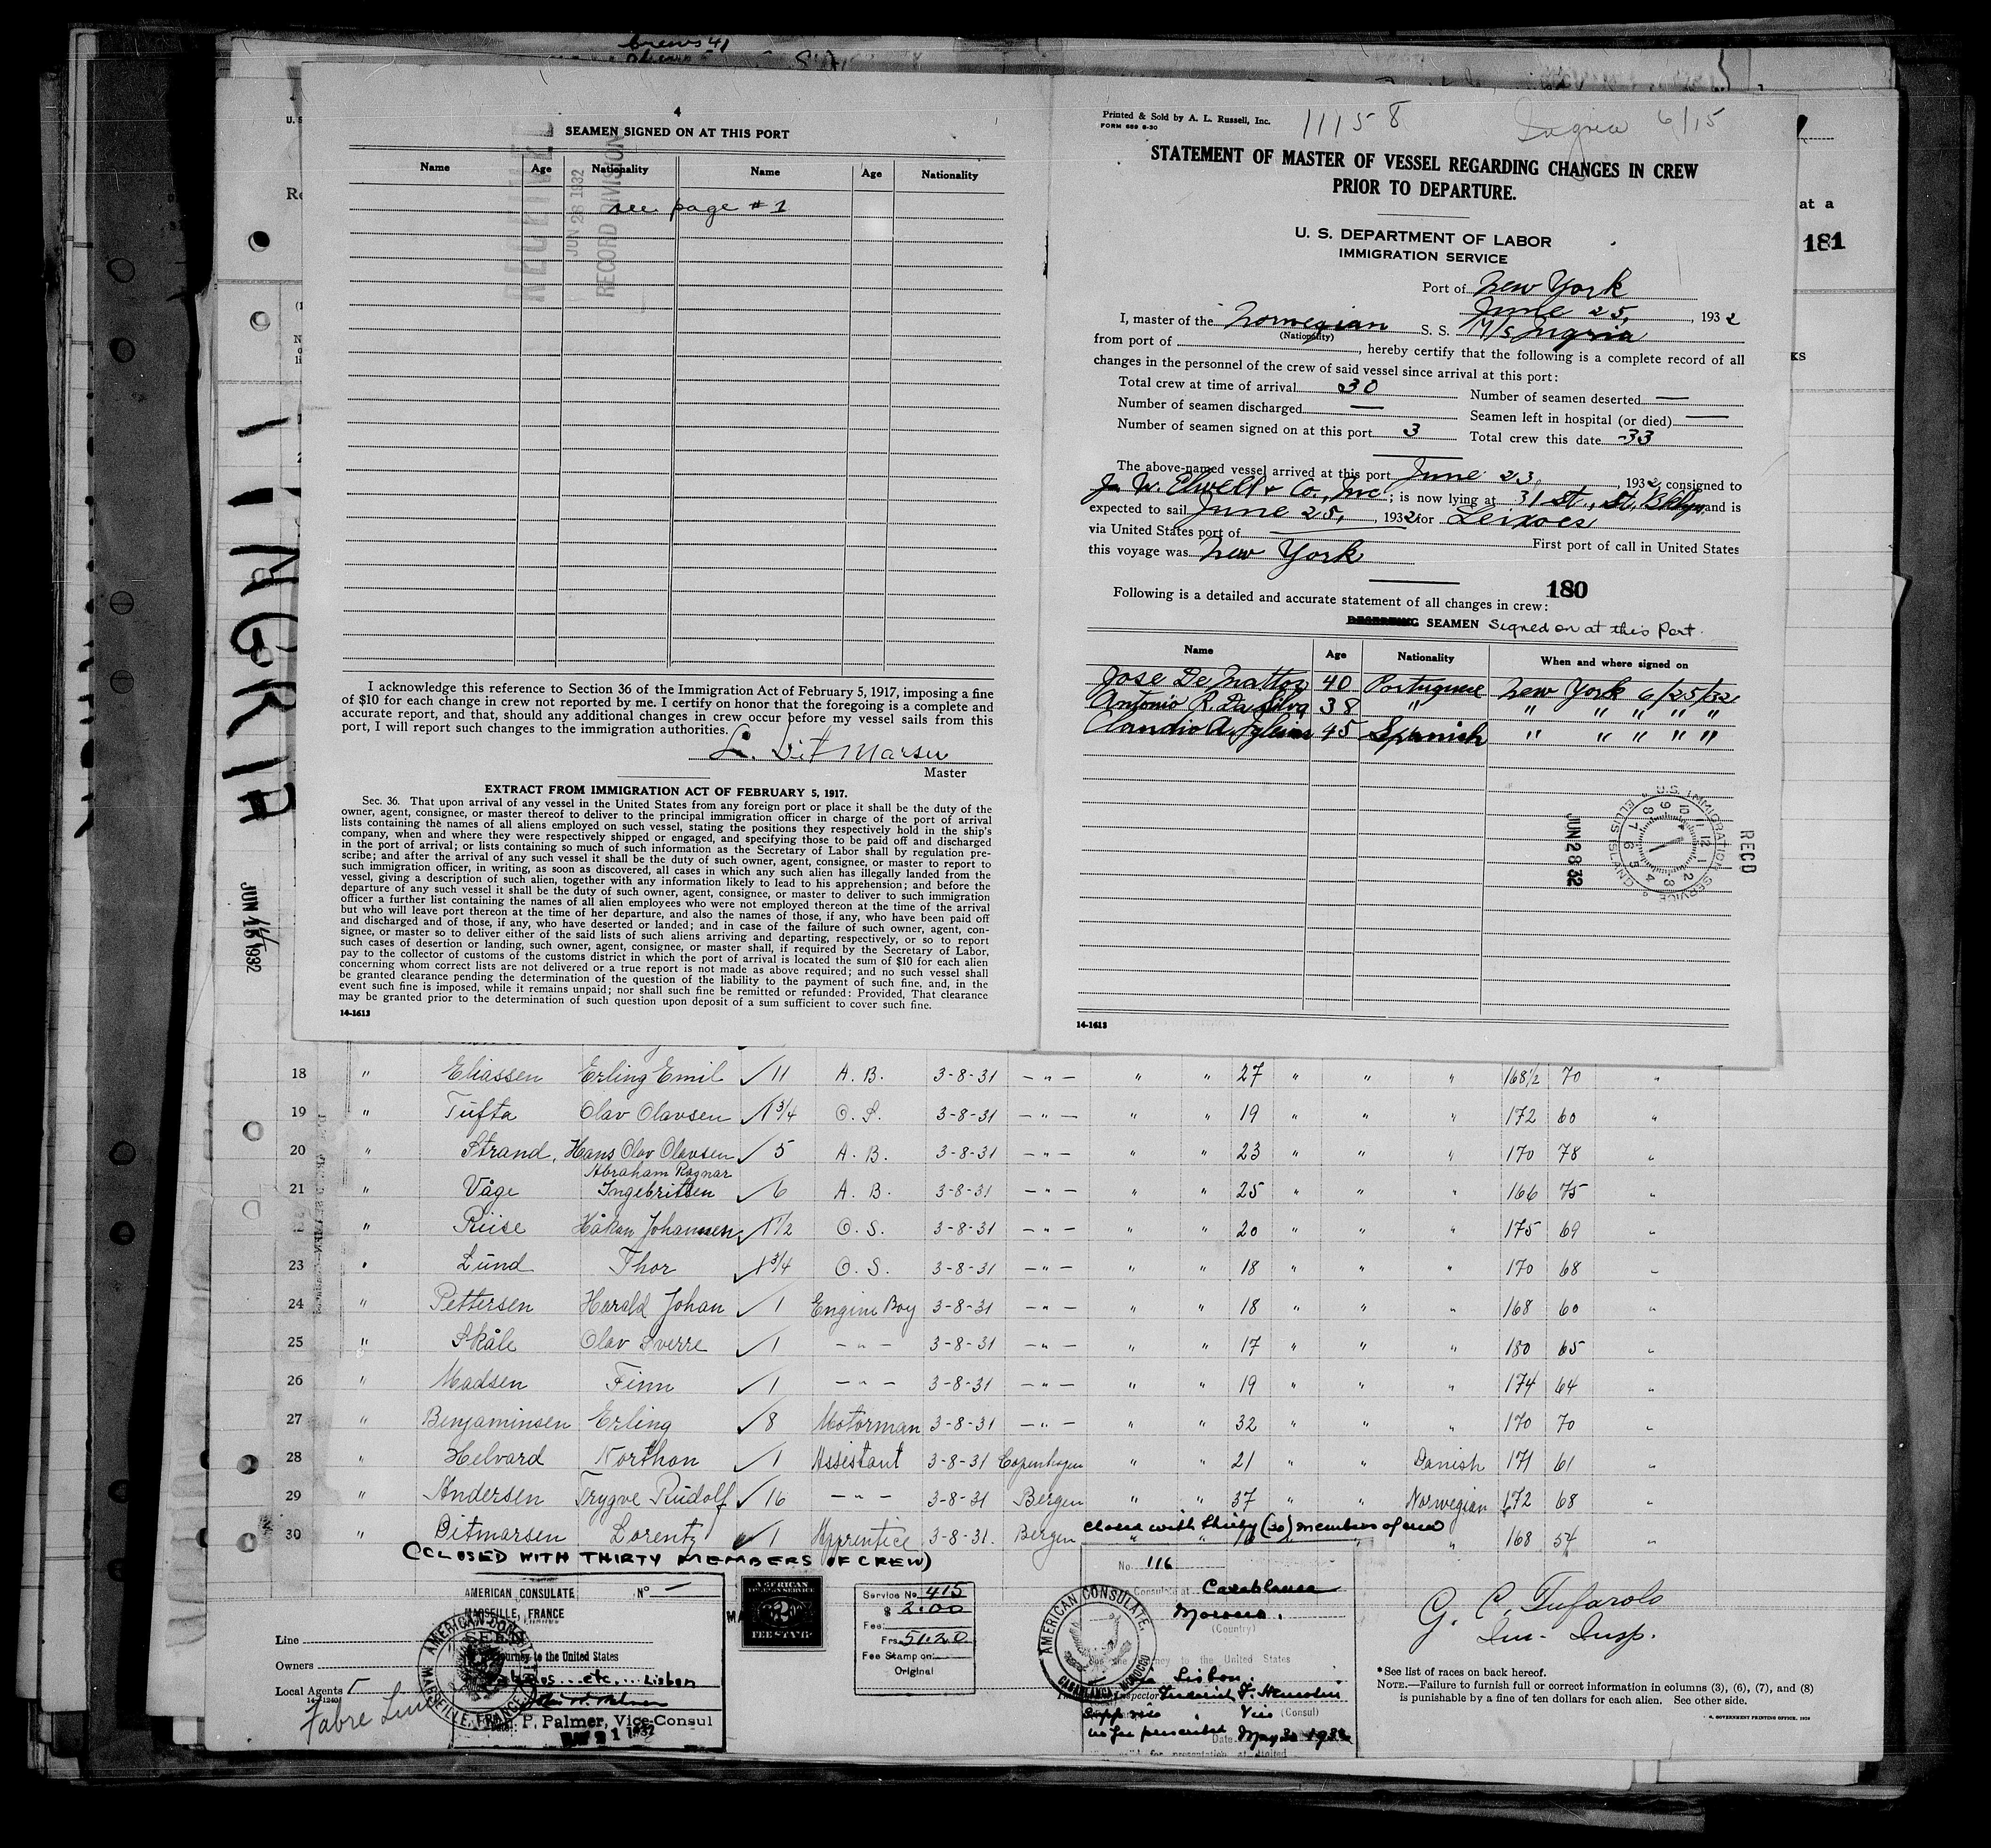 4
SEAMEN SIGNED ON AT THIS PORT
Name Age Nationality Name Age Nationality
see page #1
JUN 28 1932
RECORD DIVISION
I acknowledge this reference to Section 36 of the Immigration Act of February 5, 1917, imposing a fine
of $10 for each change in crew not reported by me. I certify on honor that the foregoing is a complete and
accurate report, and that, should any additional changes in crew occur before my vessel sails from this
port, I will report such changes to the immigration authorities.
L. Ditmarsen
Master
EXTRACT FROM IMMIGRATION ACT OF FEBRUARY 5, 1917.
Sec. 36. That upon arrival of any vessel in the United States from any foreign port or place it shall be the duty of the
owner, agent, consignee, or master thereof to deliver to the principal immigration officer in charge of the port of arrival
lists containing the names of all aliens employed on such vessel, stating the positions they respectively hold in the ship's
company, when and where they were respectively shipped or engaged, and specifying those to be paid off and discharged
in the port of arrival; or lists containing so much of such information as the Secretary of Labor shall by regulation pre-
scribe; and after the arrival of any such vessel it shall be the duty of such owner, agent, consignee, or master to report to
such immigration officer, in writing, as soon as discovered, all cases in which any such alien has illegally landed from the
vessel, giving a description of such alien, together with any information likely to lead to his apprehension; and before the
departure of any such vessel it shall be the duty of such owner, agent, consignee, or master to deliver to such immigration
officer a further list containing the names of all alien employees who were not employed thereon at the time of the arrival
but who will leave port thereon at the time of her departure, and also the names of those, if any, who have been paid off
and discharged and of those, if any, who have deserted or landed; and in case of the failure of such owner, agent, con-
signee, or master so to deliver either of the said lists of such aliens arriving and departing, respectively, or so to report
such cases of desertion or landing, such owner, agent, consignee, or master shall, if required by the Secretary of Labor,
pay to the collector of customs of the customs district in which the port of arrival is located the sum of $10 for each alien
concerning whom correct lists are not delivered or a true report is not made as above required; and no such vessel shall
be granted clearance pending the determination of the question of the liability to the payment of such fine, and, in the
event such fine is imposed, while it remains unpaid; nor shall such fine be remitted or refunded: Provided, That clearance
may be granted prior to the determination of such question upon deposit of a sum sufficient to cover such fine.
14-1613
Printed & Sold by A. L. Russell, Inc.
FORM 689 6-30
11158 Ingria 6/15
STATEMENT OF MASTER OF VESSEL REGARDING CHANGES IN CREW
PRIOR TO DEPARTURE.
U. S. DEPARTMENT OF LABOR
IMMIGRATION SERVICE
Port of New York
June 25, 1932
I, master of the Norwegian S. S. M/S Ingria
(Nationality)
from port of , hereby certify that the following is a complete record of all
changes in the personnel of the crew of said vessel since arrival at this port:
Total crew at time of arrival 30 Number of seamen deserted —
Number of seamen discharged — Seamen left in hospital (or died) —
Number of seamen signed on at this port 3 Total crew this date 33
The above-named vessel arrived at this port June 23, 1932, consigned to
J. W. Elwell & Co., Inc.; is now lying at 31 St., St, Bklyn and is
expected to sail June 25, 1932 for Leixoes
via United States port of First port of call in United States
this voyage was New York
180
Following is a detailed and accurate statement of all changes in crew:
DESERTING SEAMEN Signed on at this Port
Name Age Nationality When and where signed on
Jose De Mattos 40 Portuguese New York 6/25/32
Antonio R. Da Silva 38 " " " " " "
Claudio A. Iglesias 45 Spanish " " " " "
RECD
U.S. IMMIGRATION SERVICE ELLIS ISLAND
JUN 28 32
14-1613
at a
181
INGRIA
JUN 15 1932
18 " Eliassen Erling Emil ✓ 11 A. B. 3-8-31 - " - " " 27 " " " 168½ 70 "
19 " Tufta Olav Olavsen ✓ 1¾ O. S. 3-8-31 - " - " " 19 " " " 172 60 "
20 " Strand, Hans Olav Olavsen ✓ 5 A. B. 3-8-31 - " - " " 23 " " " 170 78 "
Abraham Ragnar
21 " Våge Ingebritsen ✓ 6 A. B. 3-8-31 - " - " " 25 " " " 166 75 "
" Riise Håkan Johannsen ✓ 1½ O. S. 3-8-31 - " - " " 20 " " " 175 69 "
23 " Lund Thor ✓ 1¾ O. S. 3-8-31 - " - " " 18 " " " 170 68 "
24 " Pettersen Harald Johan ✓ 1 Engine Boy 3-8-31 - " - " " 18 " " " 168 60 "
25 " Skåle Olav Sverre ✓ 1 - " - 3-8-31 - " - " " 17 " " " 180 65 "
26 " Madsen Finn ✓ 1 - " - 3-8-31 - " - " " 19 " " " 174 64 "
27 " Benjaminsen Erling ✓ 8 Motorman 3-8-31 - " - " " 32 " " " 170 70 "
28 " Helvard Northon ✓ 1 Assistant 3-8-31 Copenhagen " " 21 " " Danish 171 61 "
29 " Andersen Trygve Rudolf ✓ 16 - " - 3-8-31 Bergen " " 37 " " Norwegian 172 68 "
30 " Ditmarsen Lorentz ✓ 1 Apprentice 3-8-31. Bergen " " 16 " " " 168 54 "
Closed with thirty (30) members of crew
(CLOSED WITH THIRTY MEMBERS OF CREW)
AMERICAN CONSULATE Nº —
MARSEILLE, FRANCE
SEEN
journey to the United States
etc. Lisbon
P. Palmer, Vice-Consul
MAY 21 1932
AMERICAN CONSULATE MARSEILLE, FRANCE
Line
Owners
Local Agents
14-1240
Fabre Line
AMERICAN
FOREIGN SERVICE
FEE STAMP
Service No. 415
$ 2.00
Fee:
Frs. 51.20
Fee Stamp on:
Original
No. 116
Consulate at Casablanca
Morocco.
(Country)
journey to the United States
Lisbon.
Vice (Consul)
no fee prescribed Date May 30 1932
AMERICAN CONSULATE. CASABLANCA, MOROCCO
G. C. Tufarolo
Im- Insp.
*See list of races on back hereof.
NOTE.—Failure to furnish full or correct information in columns (3), (6), (7), and (8)
is punishable by a fine of ten dollars for each alien. See other side.